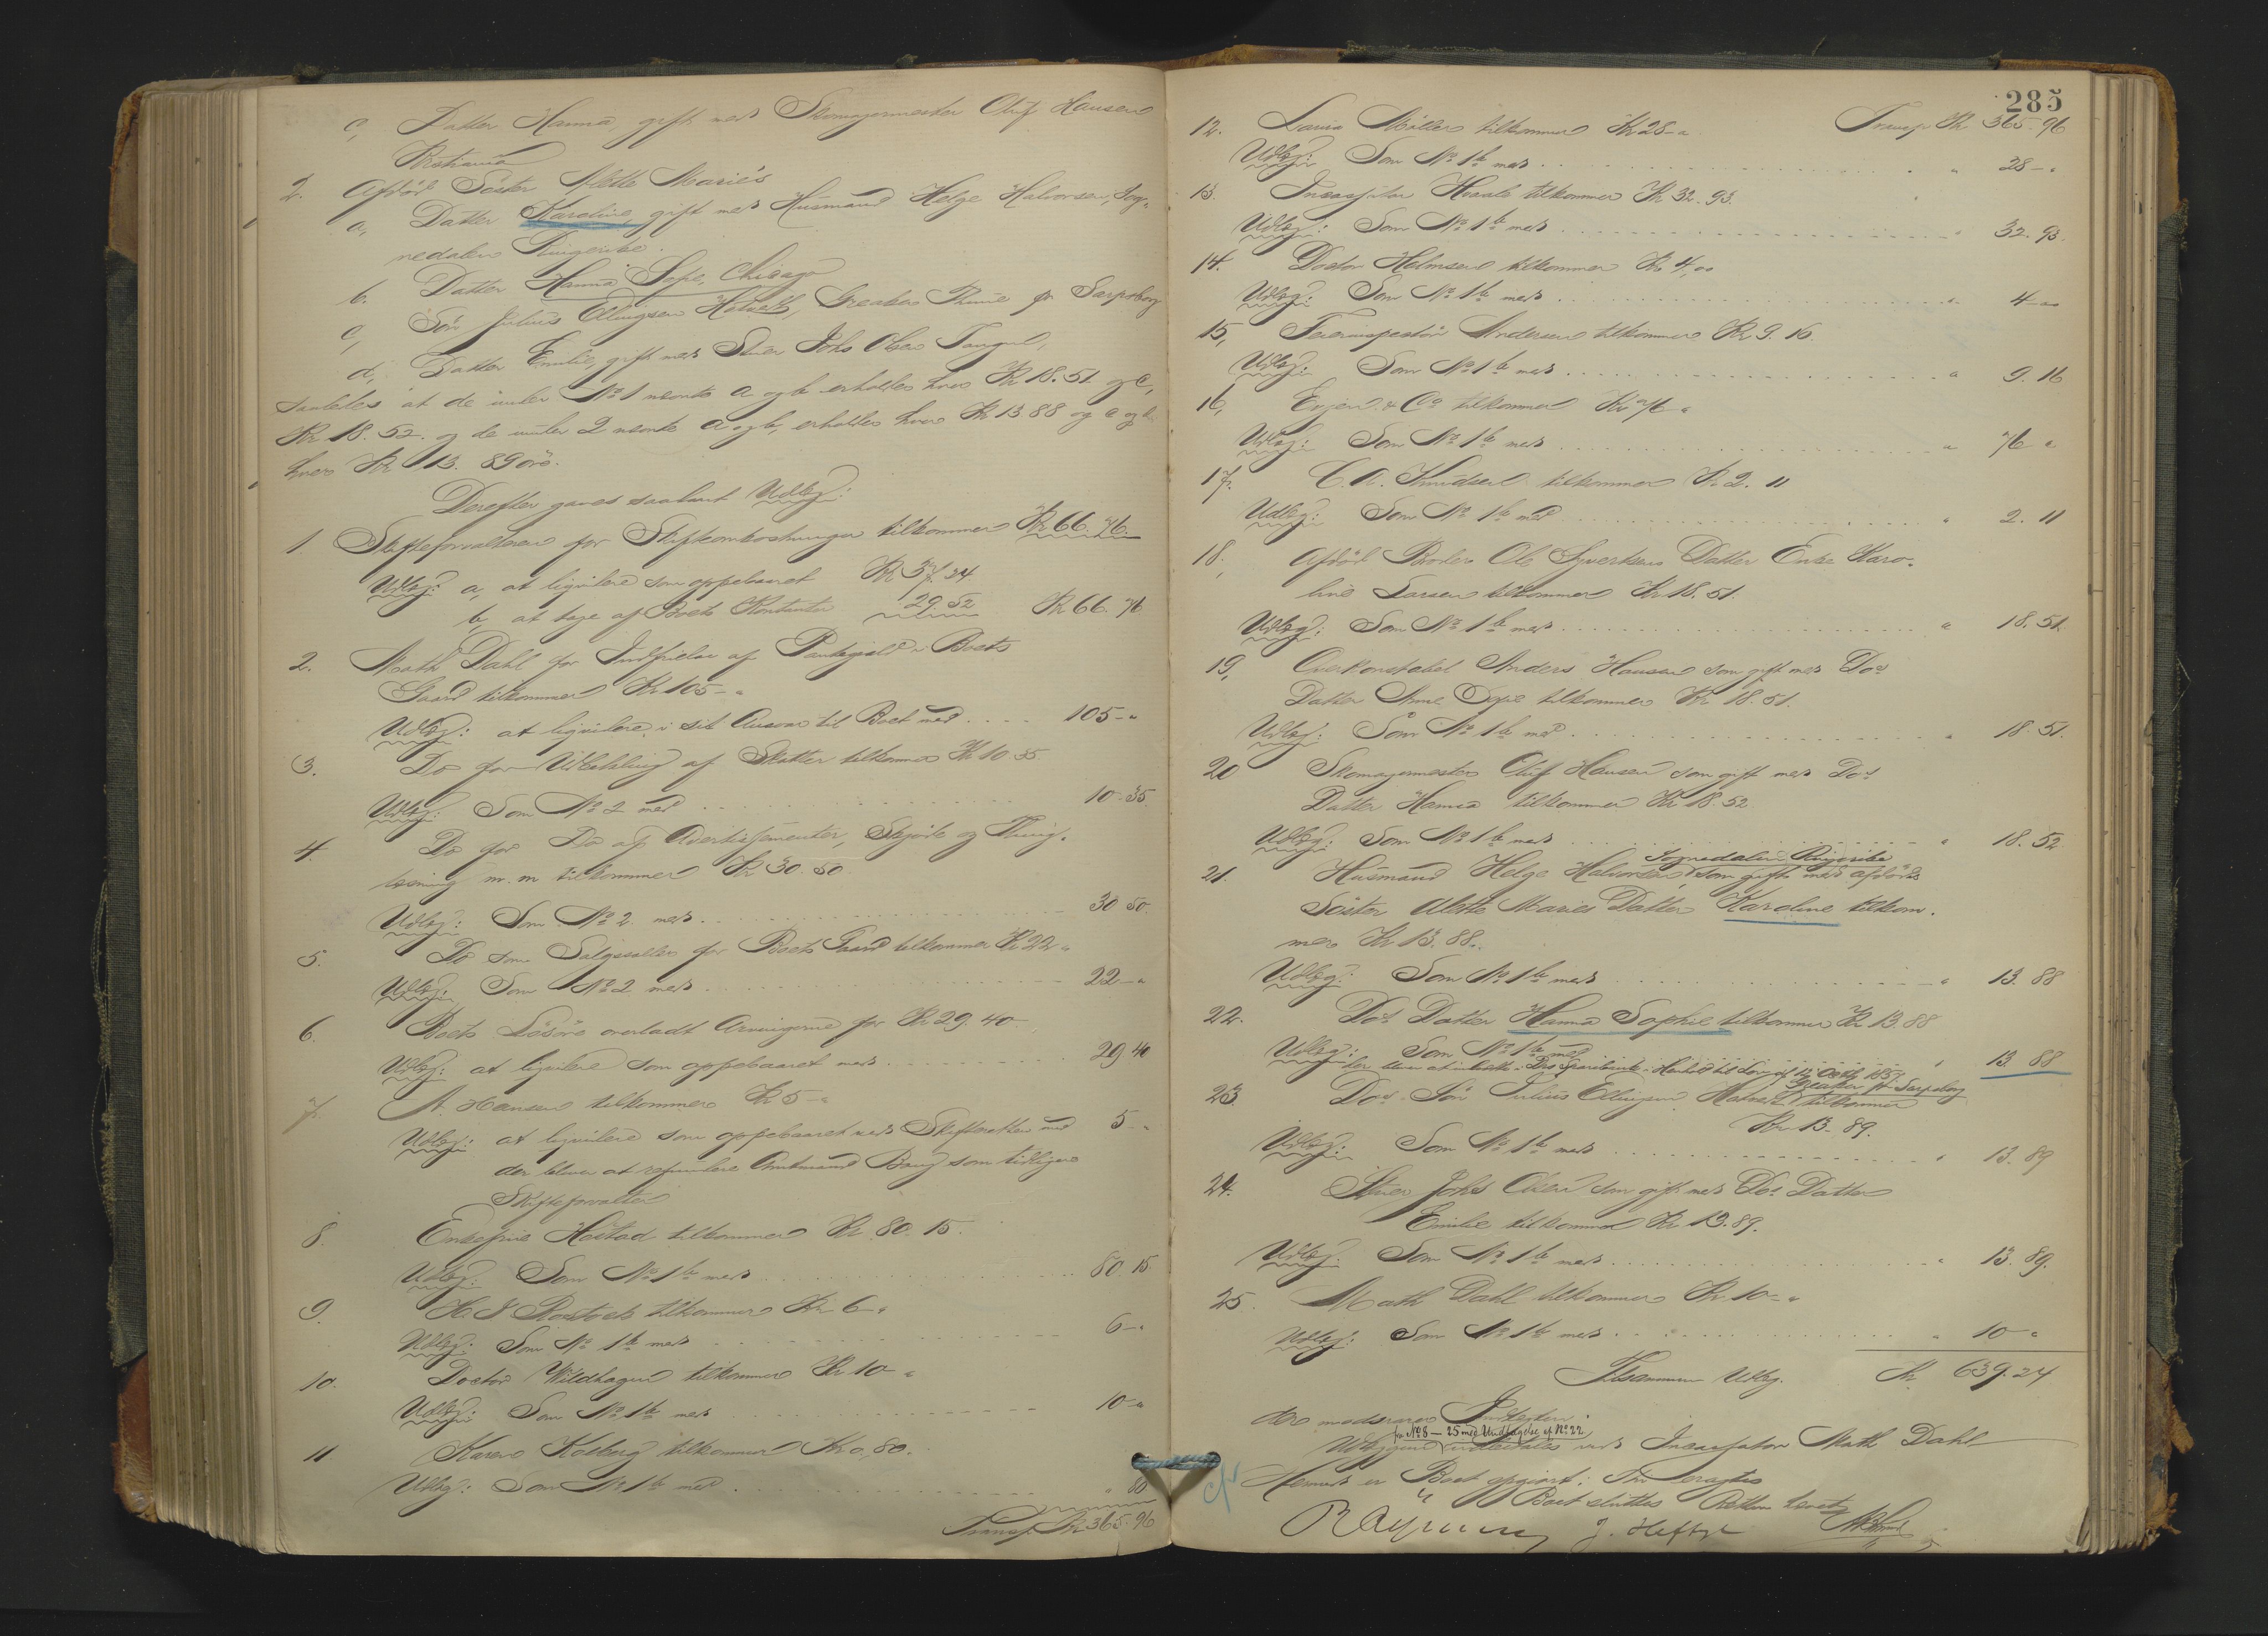 c, Datter Hanna, gift med Skomagermester Oluf Hansen
Kristiania
2. Afdød Søster Alette Marie's
a, Datter Karoline, gift med Husmand Helge Halvorsen, Sog-
nedalen Ringerike.
b. Datter Hanna Sofie, Chicago
c, Søn Julius Ellingsen Greaker pr Sarpsborg
d, Datter Emilie, gift med Stuer Johs Olsen Tangen,
saaledes at de under No 1 nævnte a og b erholder hver Kr 18.51 og c,
Kr 18.52. og de under 2 nævnte a og b, erholder hver Kr 13 88 og c og d
hver Kr 13. 89 øre.
Derefter gaves saadant Udlæg:
1 Skifteforvalteren for Skifteomkostninger tilkommer Kr 66. 76.
Udlæg: a, at liqvidere som oppebaaret Kr 37. 24
b, at tage af Boets Kontanter 29. 52 Kr 66. 76
2. Math Dahl for Indfrielse af Pantegjæld i Boets
Gaard tilkommer Kr 105 - "
Udlæg: at liqvidere i sit Ansvar til Boet med .... 105 - "
3. Do for Udbetaling af Skatter tilkommer Kr 10 35
Udlæg: Som No 2 med 10. 35.
4. Do for Do af Avertissementer, Skjøde og Thing-
læsning m.m tilkommer Kr 30. 50
Udlæg: Som No 2. med 30 50.
5. Do som Salgssallær for Boets Gaard tilkommer Kr 22 "
Udlæg: Som No 2 med 22 - "
6. Boets Løsøre overladt Arvingerne for Kr 29. 40
Udlæg: at liqvidere som oppebaaret med 29 40
7. A. Hansen tilkommer Kr 5 - "
Udlæg: at liqvidere som oppebaaret med Skifteretten med 5 - "
der bliver at refundere Amtmand Bang som tidligere
Skifteforvalter
8. Enkefrue Høstad tilkommer Kr. 80. 15.
Udlæg: Som No 1 b med 80. 15
9. H. J Rostock tilkommer Kr 6 - "
Udlæg: Som No 1 b med 6 - "
10. Doctor Wildhagen tilkommer Kr 10 - "
Udlæg: Som No 1 b med 10 - "
11 Karen Kolberg tilkommer Kr 0,80.
Udlæg: Som No 1 b med " 80
Transp. Kr 365. 96
285
12. Møller tilkommer Kr 28 - " Transp Kr 365. 96
Udlæg: Som No 1 b med " 28 - "
13. Incassator tilkommer Kr 32. 93.
Udlæg: Som No 1 b med " 32. 93.
14. Doctor Holmsen tilkommer Kr 4,00
Udlæg: Som No 1 b med " 4 - "
15, Feierinspectør Andersen tilkommer Kr 9. 16.
Udlæg: Som No 1 b med " 9. 16
16, Evjen & Co tilkommer Kr 76 "
Udlæg: Som No 1 b med " 76 "
17. C. A. Knudsen tilkommer Kr 2. 11
Udlæg: Som No 1 b med " 2. 11
18, Afdød Broder Ole Syvertsens Datter Enke Karo-
line Larsen tilkommer Kr 18. 51.
Udlæg: Som No 1 b med " 18. 51.
19, Overkonstabel Anders Hansen som gift med Dos
Datter tilkommer Kr 18. 51.
Udlæg: Som No 1 b med " 18. 51.
20 Skomagermester Oluf Hansen som gift med Dos
Datter Hanna tilkommer Kr 18. 52
Udlæg: Som No 1 b med " 18. 52
Sognedalen Ringerike
21. Husmand Helge Halvorsen, som gift med afdøde
Søster Alette Maries Datter Karoline tilkom-
mer Kr 13. 88.
Udlæg: Som No 1 b med " 13. 88
22. Dos Datter Hanna Sophie tilkommer Kr 13. 88
Udlæg: Som No 1 b med " 13. 88
der bliver at indsætte i Drs Sparebank i Henhold til Lov af 12 Octbr 1857
Greaker pr Sarpsborg
23. Dos Søn Julius Ellingsen tilkommer
Kr 13. 89.
Udlæg: Som No 1 b med " 13. 89
24. Stuer Johs Olsen som gift med Dos Datter
Emilie tilkommer Kr 13. 89.
Udlæg: Som No 1 b med " 13. 89.
25. Math Dahl tilkommer Kr 10 - "
Udlæg: Som No 1 b med " 10 - "
Tilsammen Udlæg. Kr 639. 24
der modsvarer Indtægten.
fra No 8 - 25 med Undtagelse af No 22
Udlæggene udbetales ved Incassator Math Dahl
Hermed er Boet opgjort.
Boet sluttes Retten hævet
J. Heftye